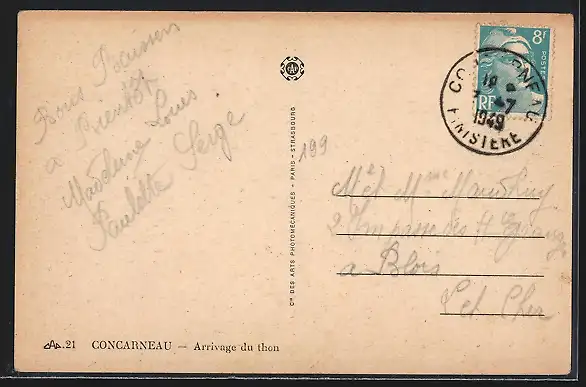 Bons Baisers
a Bientôt
Madeleine Louis
Paulette Serge
199
8F
POSTES
RF
CONCARNEAU
18
-7
1949
FINISTERE
Cie DES ARTS PHOTOMECANIQUES - PARIS - STRASBOURG
Mr et Mme
2 Impasse des
a Blois
L et Cher
CAP. 21 CONCARNEAU — Arrivage du thon